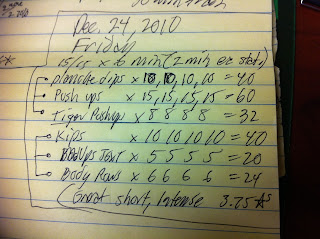 Dec. 24, 2010
Friday
15/15 x 6 min (2 min ea sta.)
planche dips x 10, 10, 10, 10 = 40
Push ups x 15, 15, 15, 15 = 60
Tiger Pushup x 8 8 8 8 = 32
Kips x 10 10 10 10 = 40
5 5 5 5 = 20
Body Rows x 6 6 6 6 = 24
(Great short, Intense 3.75